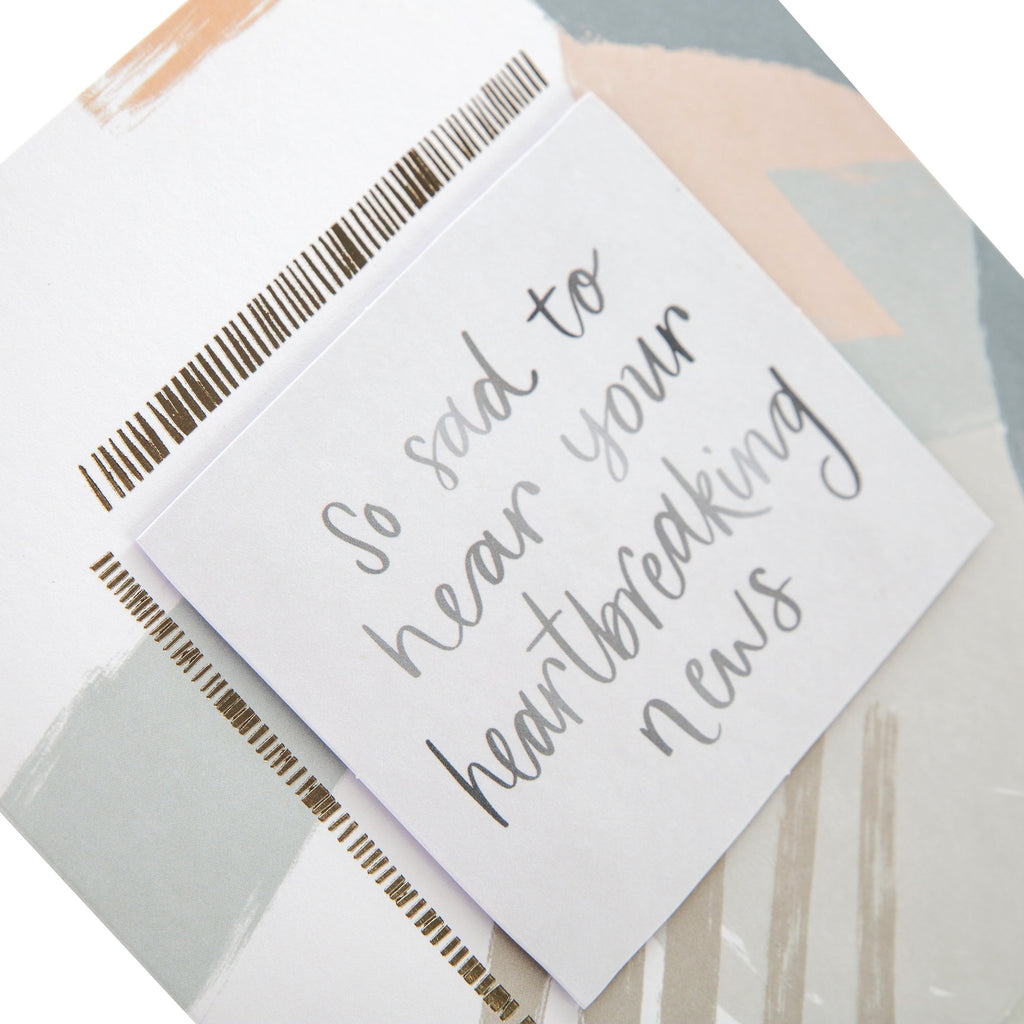 So sad to
hear your
heartbreaking
news